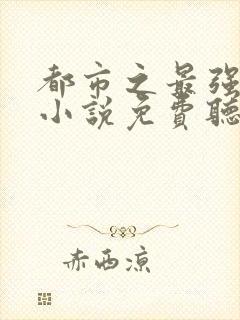 都市之最强
小說免費聽
赤西凉